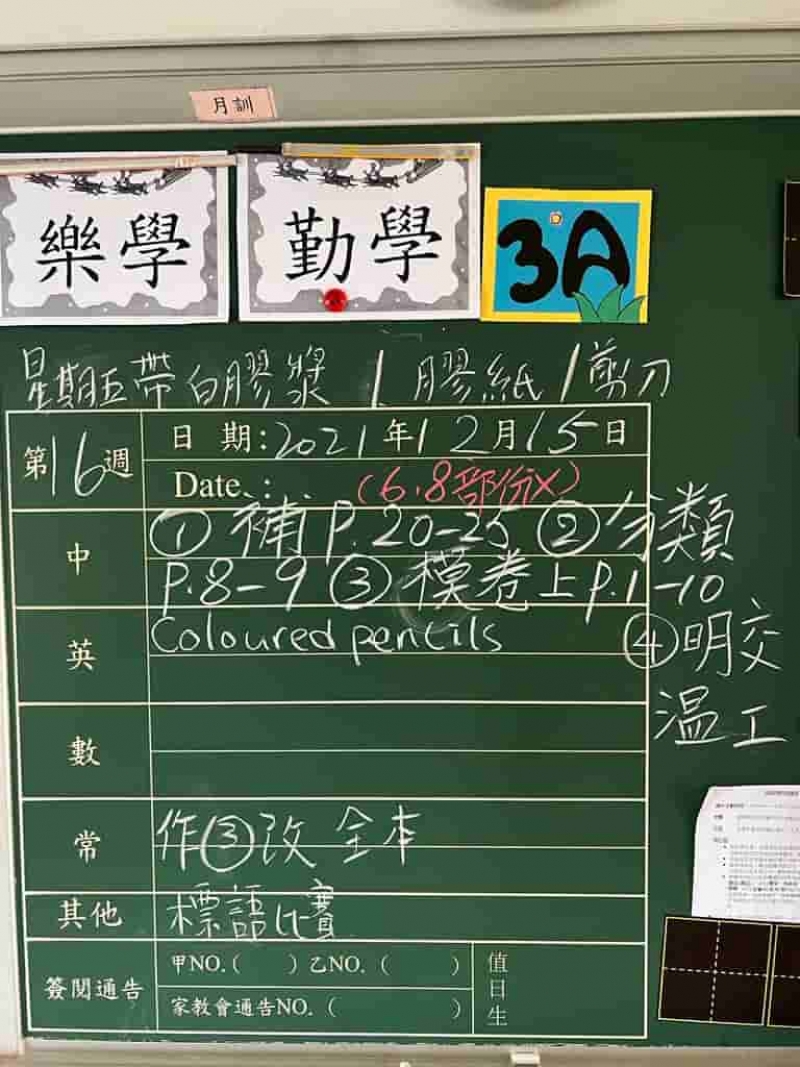 月訓
樂學 勤學 3A
星期五帶白膠漿 / 膠紙 / 剪刀
第16週 日期：2021年12月15日
Date： (6.8部份X)
中 ① 補 P.20-25 ② 分類
P.8-9 ③ 模卷上 P.1-10
英 Coloured pencils ④明交
溫工
數
常 作③改 全本
其他 標語比賽
簽閱通告 甲NO.( ) 乙NO.( ) 值日生
家教會通告NO.( )